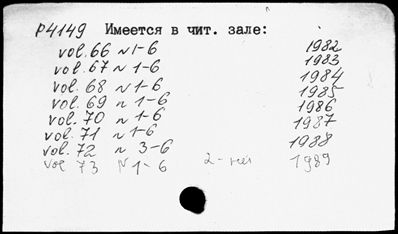 P4149 Имеется в чит. зале:
vol. 66 N 1-6 1982
vol. 67 N 1-6 1983
vol. 68 N 1-6 1984
vol. 69 N 1-6 1985
vol. 70 N 1-6 1986
vol. 71 N 1-6 1987
vol. 72 N 3-6 1988
vol 73 N 1-6 1989